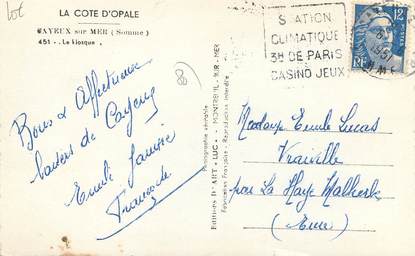 Lot
LA COTE D'OPALE
CAYEUX sur MER (Somme)
451 - Le kiosque
STATION
CLIMATIQUE
3H DE PARIS
CASINO JEUX
1951
12F
Bons & Affectueux
baisers de Cayeux
Emile
Francoise
Editions D'ART "LUC" - MONTREUIL-SUR-MER
Photographie véritable
Fabrication Française - Reproduction interdite
Madame Emile Lucas
Vraiville
par La Haye Malherbe
(Eure)